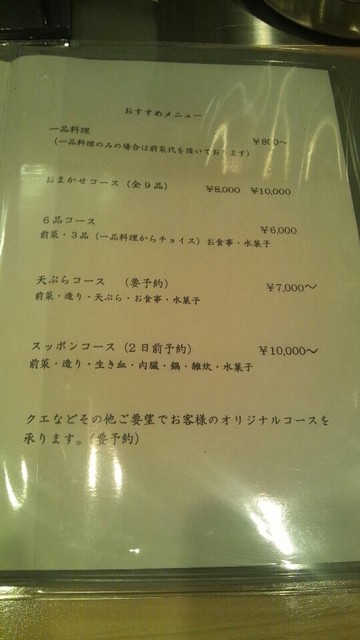 おすすめメニュー
一品料理 ￥800～
（一品料理のみの場合は前菜代を頂いております）
おまかせコース（全９品） ￥8,000 ￥10,000
６品コース ￥6,000
前菜・３品（一品料理からチョイス）お食事・水菓子
天ぷらコース （要予約） ￥7,000～
前菜・造り・天ぷら・お食事・水菓子
スッポンコース（２日前予約） ￥10,000～
前菜・造り・生き血・内臓・鍋・雑炊・水菓子
クエなどその他ご要望でお客様のオリジナルコースを
承ります。（要予約）